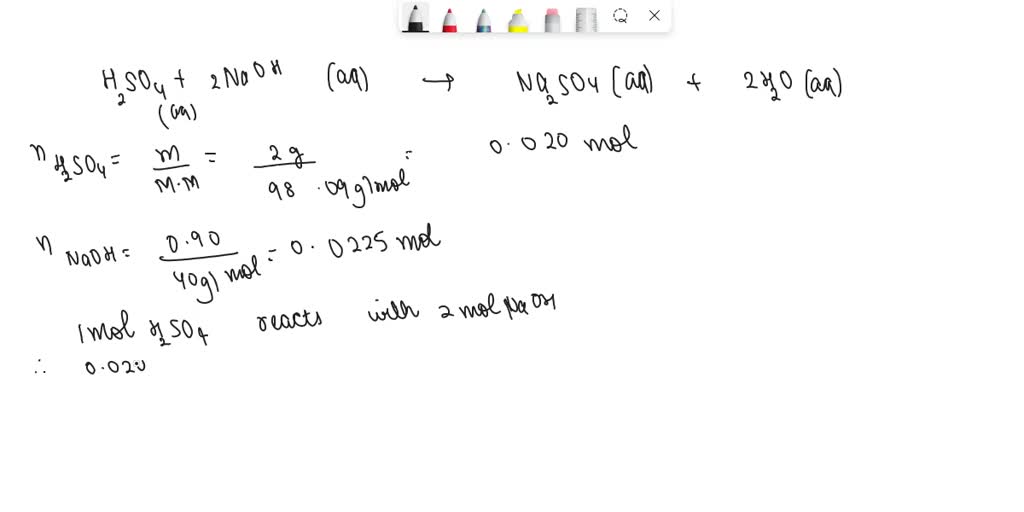 H2SO4 + 2NaOH (aq) → Na2SO4 (aq) + 2H2O (aq)
(aq)
n H2SO4 = m / M.M = 2g / 98.09g/mol = 0.020 mol
n NaOH = 0.90 / 40g/mol = 0.0225 mol
1mol H2SO4 reacts with 2 mol NaOH
∴ 0.020